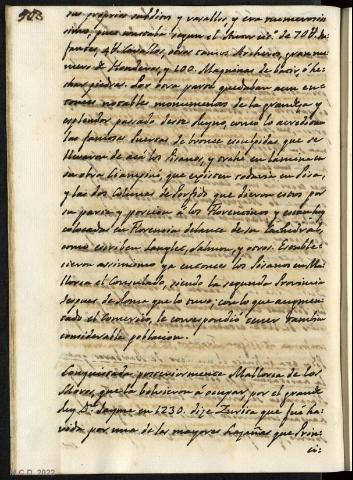 sus propios subditos y vasallos, y era numerosisimo, pues constaba segun el
fantes, 4 Cavallos, otros tantos Archeros, gran numero de Honderos, y 400. Maquinas de batir, ó hechar piedras. Por otra parte quedaban aun entonces notables monumentos de la grandeza y
esplendor pasado deste Reyno, como lo acreditan
las famosas Puertas de bronce esculpidas que se
llevaron de acá los Pisanos, y trahe en lamina en
su obra Ciampini, que existen todavia en Pisa,
y las dos Colunas de Porfido que dieron estos por
su parte y porcion á los Florentinos y estan hoy
colocadas en Florencia delante de su Cathedral,
como escriben y otros. Estable-
cieron assimismo ya entonces los Pisanos en Ma-
llorca el Consulado, siendo la segunda Provincia
despues de Roma que lo tuvo, con lo que aumen-
tado el Comercio, le correspondió tener tambien
considerable poblacion.
Conquistada posteriormente Mallorca de los
Moros, que la bolvieron á ocupar, por el grande
Rey Dn. Jayme en 1230. dize Zurita que fue ha-
vida por una de las mayores hazañas que Prin-
ci-
M.C.D. 2022